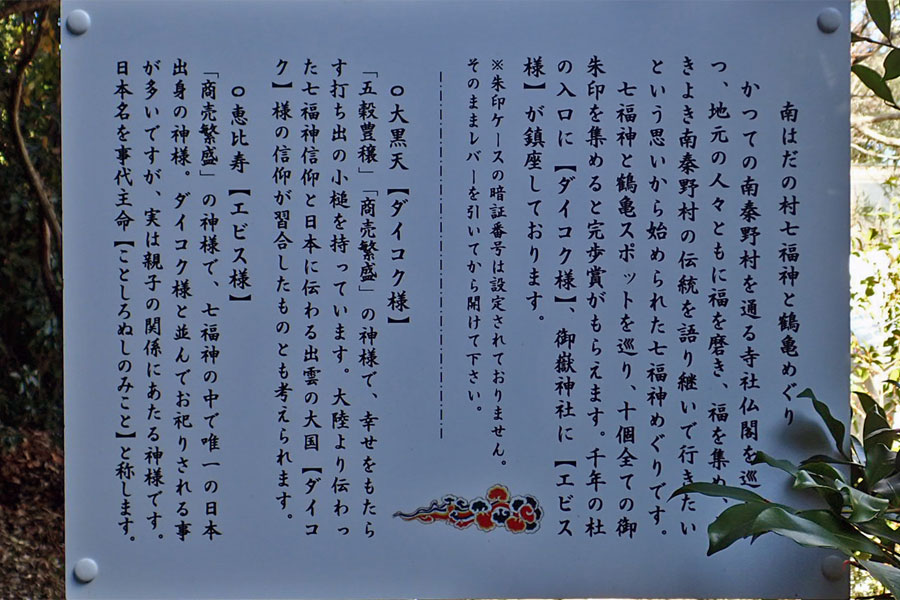 南はだの村七福神と鶴亀めぐり
かつての南秦野村を通る寺社仏閣を巡
つ、地元の人々ともに福を磨き、福を集め
きよき南秦野村の伝統を語り継いで行きたい
という思いから始められた七福神めぐりです。
七福神と鶴亀スポットを巡り、十個全ての御
朱印を集めると完歩賞がもらえます。千年の杜
の入口に【ダイコク様】、御嶽神社に【エビス
様】が鎮座しております。
※朱印ケースの暗証番号は設定されておりません。
そのままレバーを引いてから開けて下さい。
○大黒天【ダイコク様】
「五穀豊穣」「商売繁盛」の神様で、幸せをもたら
す打ち出の小槌を持っています。大陸より伝わっ
た七福神信仰と日本に伝わる出雲の大国【ダイコ
ク】様の信仰が習合したものとも考えられます。
○恵比寿【エビス様】
「商売繁盛」の神様で、七福神の中で唯一の日本
出身の神様。ダイコク様と並んでお祀りされる事
が多いですが、実は親子の関係にあたる神様です。
日本名を事代主命【ことしろぬしのみこと】と称します。